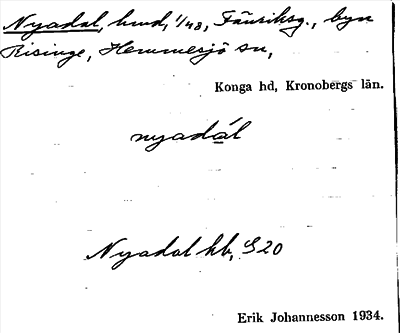 Nyadal, hmd, 1/48, Fänriksg., byn
Risinge, Hemmesjö sn,
Konga hd, Kronobergs län.
nyadál
Nyadal hb, S20
Erik Johannesson 1934.